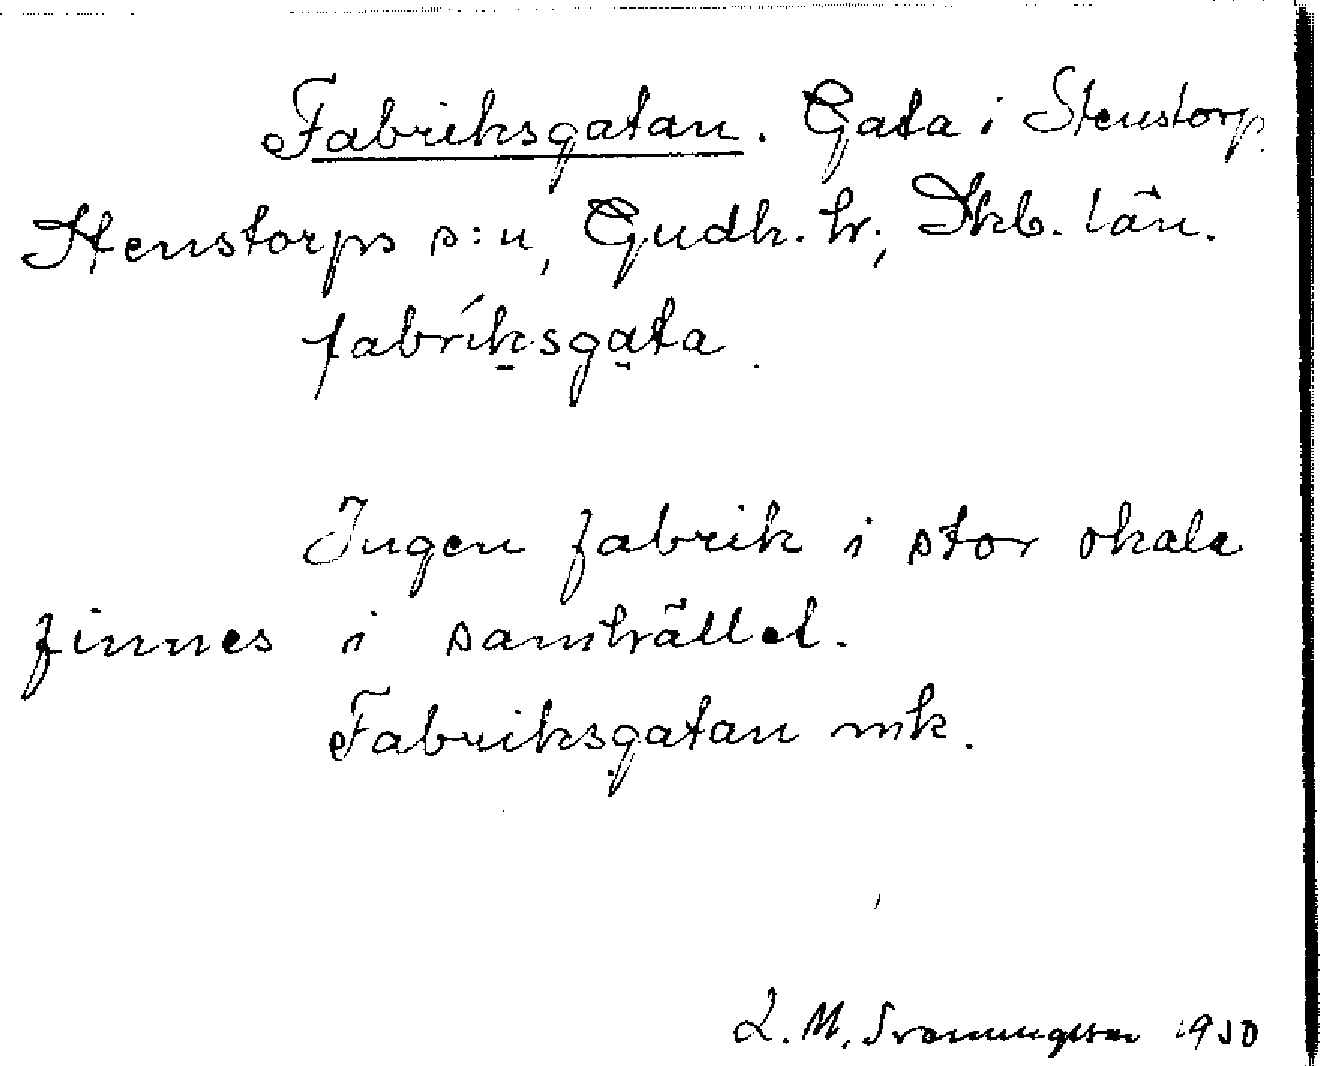 Fabriksgatan. Gata i Stenstorp.
Stenstorps s:n, Gudh. hr., Skb. län.
fabríksgata.
Ingen fabrik i stor skala
finnes i samhället.
Fabriksgatan mk.
L. M. 1930